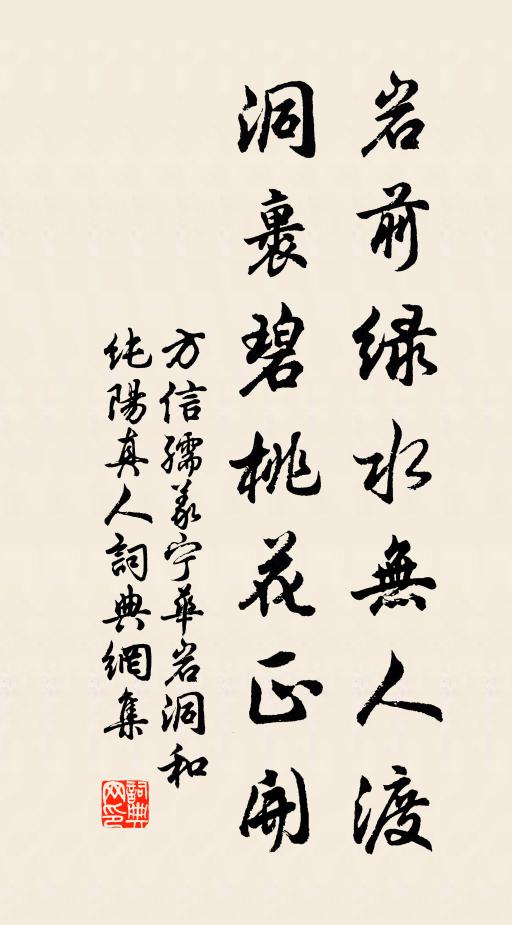 岩前緑水無人渡
洞裏碧桃花正開
方信孺義宁華岩洞和
純陽真人詞典網集
詞典网印